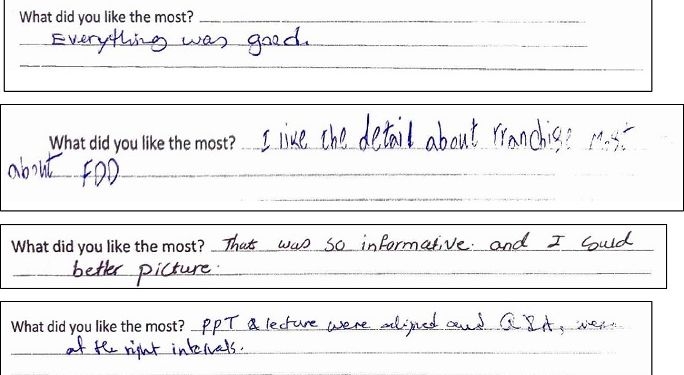 What did you like the most?
Everything was good.
What did you like the most? I like the detail about Franchise Most
about FDD
What did you like the most? That was so informative. and I could
better picture.
What did you like the most? PPT & lecture were aligned and Q&A, were
at the right intervals.